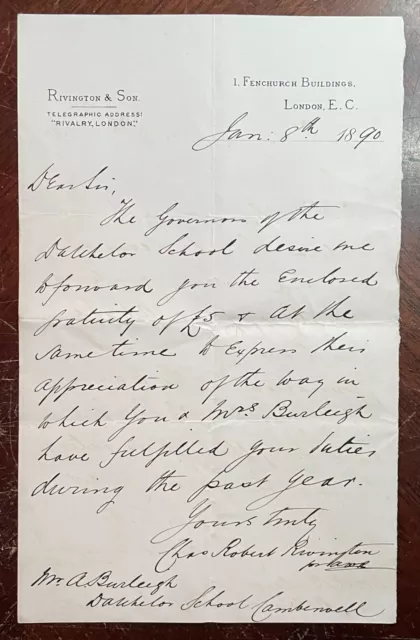 Rivington & Son.
TELEGRAPHIC ADDRESS:
"RIVALRY, LONDON."
1, Fenchurch Buildings,
London, E.C.
Jan: 8th 1890
Dear Sir,
The Governors of the
Datchelor School desire me
to forward you the Enclosed
gratuity of £5 & at the
same time to Express their
appreciation of the way in
which You & Mrs Burleigh
have fulfilled your duties
during the past year.
Yours truly
Chas Robert Rivington
Mr. A Burleigh
Datchelor School Camberwell